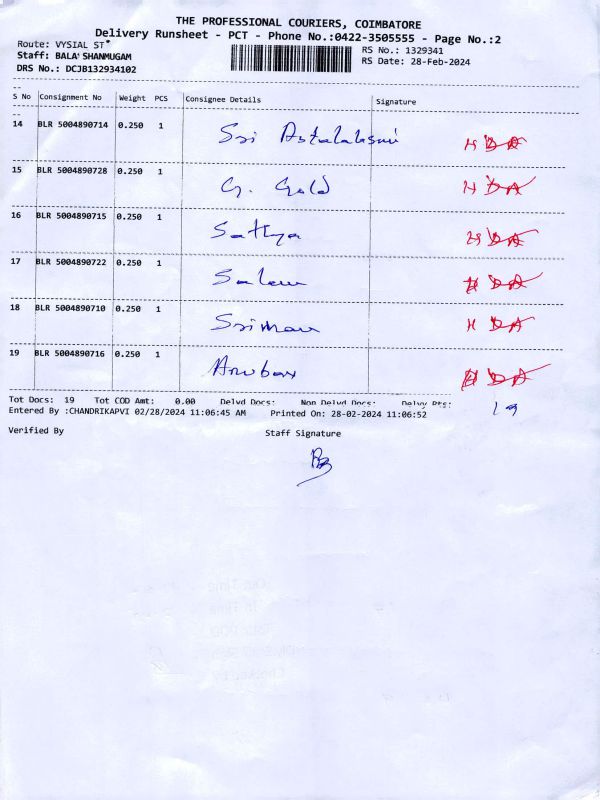 THE PROFESSIONAL COURIERS, COIMBATORE
Delivery Runsheet - PCT - Phone No.:0422-3505555 - Page No.:2
Route: VYSIAL ST*
RS No.: 1329341
Staff: BALA SHANMUGAM
RS Date: 28-Feb-2024
DRS No.: DCJB132934102
S No Consignment No Weight PCS Consignee Details Signature
14 BLR 5004890714 0.250 1 Sri
15 BLR 5004890728 0.250 1 G. Gold
16 BLR 5004890715 0.250 1 Sathya
17 BLR 5004890722 0.250 1 Salem
18 BLR 5004890710 0.250 1
19 BLR 5004890716 0.250 1
Tot Docs: 19 Tot COD Amt: 0.00 Delvd Docs: Non Delvd Docs: Delvy Pts: 19
Entered By :CHANDRIKAPVI 02/28/2024 11:06:45 AM Printed On: 28-02-2024 11:06:52
Verified By Staff Signature